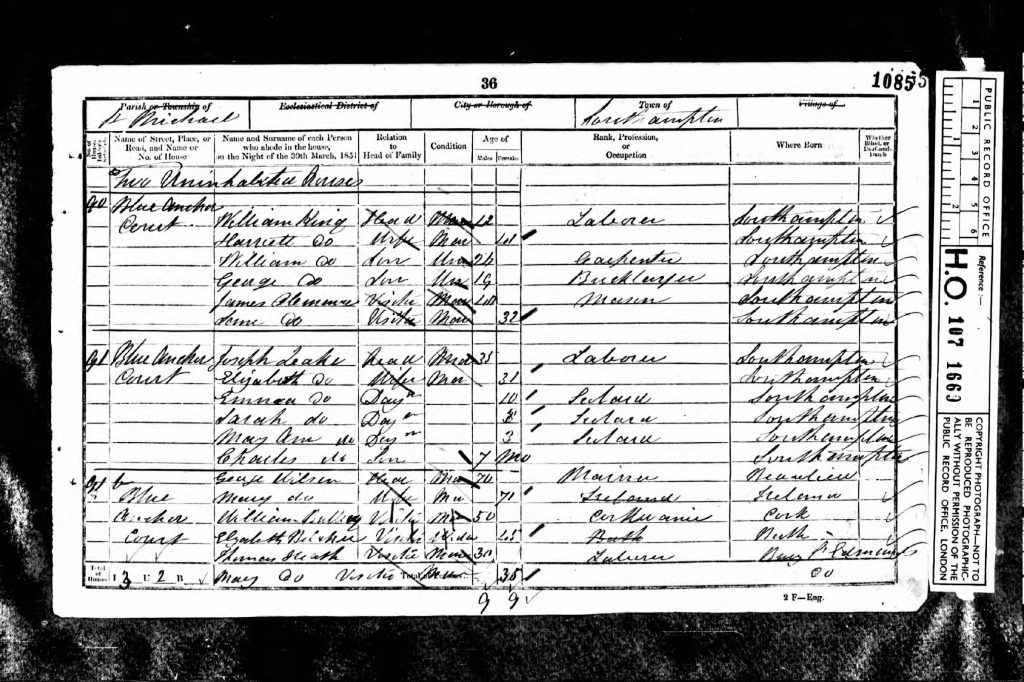 36
1085
Parish or Township of Ecclesiastical District of City or Borough of Town of Village of
St Michael Southampton
No. of House Name of Street, Place, or Road, and Name or No. of House Name and Surname of each Person who abode in the house, on the Night of the 30th March, 1851 Relation to Head of Family Condition Age of Males Females Rank, Profession, or Occupation Where Born Whether Blind, or Deaf-and-Dumb
Two Uninhabited Houses
90 Blue Anchor
Court William King Head Mar Laborer Southampton
Harriett Do Wife Mar Southampton
William Do Son Un Carpenter Southampton
George Do Son Un 19 Bricklayer Southampton
James Visitor Mar Mason Southampton
Do Visitor Mar 32 Southampton
91 Blue Anchor Joseph Leake Head Mar Laborer Southampton
Court Elizabeth Do Wife Mar 31 Southampton
Emma Do Daur 10 Scolard Southampton
Sarah do Daur Scolard Southampton
Mary Ann do Daur 3 Scolard Southampton
Charles do Son 7 Mo Southampton
George Wilson Head Mar 70 Mariner Beaulieu
Blue Mary do Wife Mar 71 Ireland Ireland
Anchor William Visitor Mar 50 Cork
Court Elizabeth Visitor Widow Bath Bath
Thomas Heath Visitor Mar 30 Laborer Bury St Edmunds
Total of Houses I 3 U 2 B Mary Do Visitor Total Mar 35 Do
9 9
2 F—Eng.
PUBLIC RECORD OFFICE
1 2 3 4 5 6
1 2
Reference :—
H.O. 107 1669
COPYRIGHT PHOTOGRAPH—NOT TO BE REPRODUCED PHOTOGRAPHICALLY WITHOUT PERMISSION OF THE PUBLIC RECORD OFFICE, LONDON